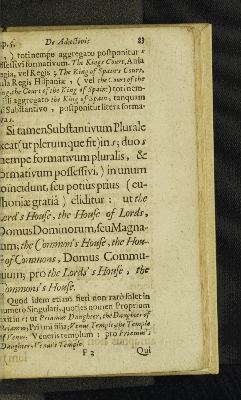 ap. 5. De Adjectivis 83
) toti nempe aggregato postponitur s
ossessivi formativum. The Kings Court, Aula
egia, vel Regis; The King of Spain's Court,
ula Regis Hispaniæ, (vel the Court of the
ing, the Court of the King of Spain:) toti nem-
illi aggregato the King of Spain, tanquam
i Substantivo, postponitur litera forma-
va s.
Si tamen Substantivum Plurale
exeat (ut plerumque fit) in s; duo s
nempe formativum pluralis, &
formativum possessivi,) in unum
coincidunt, seu potiùs prius (eu-
phoniæ gratiâ) eliditur: ut the
Lord's House, the House of Lords,
Domus Dominorum, seu Magna-
um; the Common's House, the Hou-
of Commons, Domus Commu-
nium; pro the Lords's House, the
Commons's House.
Quod idem etiam fieri non rarò solet in
numero Singulari, quoties nomen Proprium
exit in s: ut Priamus Daughter, the Daughter of
Priamus, Priami filia; Venus Temple, the Temple
of Venus, Veneris templum: pro Priamus's
Daughter, Venus's Temple.
F 2 Qui